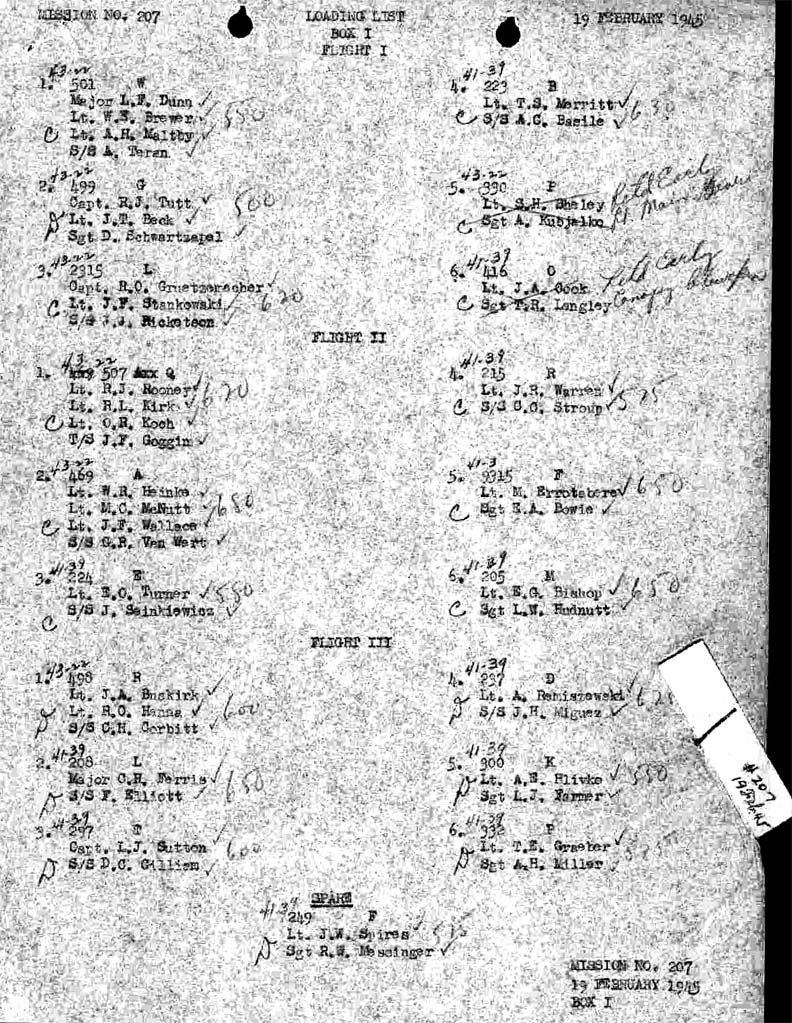 MISSION NO. 207
LOADING LIST
19 FEBRUARY 1945
BOX I
FLIGHT I
43-22
1. 501 W
Major L.F. Dunn ✓
Lt. W.E. Brewer ✓ 550
C Lt. A.H. Maltby ✓
S/S A. Teran ✓
43-22
2. 499 G
Capt. R.J. Tutt ✓ 500
D Lt. J.T. Beck ✓
Sgt D. Schwartzapel ✓
43-22
3. 2315 L
Capt. R.O. Gruetzemacher ✓
C Lt. J.F. Stankowski ✓ 620
S/S J.J. Ricketson ✓
41-39
4. 223 B
Lt. T.S. Merritt ✓ 630
C S/S A.C. Basile ✓
43-22
5. 390 P
Lt. S.H. Shaley Retd Early
C Sgt A. Kubjalko
41-39
6. 416 O
Lt. J.A. Cook Retd Early
C Sgt T.R. Langley Canopy
FLIGHT II
43-22
1. 507 Q
Lt. R.J. Rooney ✓
Lt. R.L. Kirk ✓ 620
C Lt. O.R. Koch ✓
T/S J.F. Goggin ✓
43-22
2. 469 A
Lt. W.R. Heinke ✓
Lt. M.C. McNutt ✓ 680
C Lt. J.F. Wallace ✓
S/S G.R. Van Wart ✓
41-39
3. 224 E
Lt. E.O. Turner ✓ 550
S/S J. Sainkiewicz ✓
C
41-39
4. 215 R
Lt. J.R. Warren ✓
C S/S C.C. Stroup ✓ 575
41-3
5. 9315 F
Lt. M. Errotabere ✓ 650
C Sgt E.A. Bowie ✓
41-39
6. 205 M
Lt. E.G. Bishop ✓ 650
C Sgt L.W. Hudnutt ✓
FLIGHT III
43-22
1. 498 R
Lt. J.A. Buskirk ✓
D Lt. R.O. Hanna ✓ 600
S/S C.H. Corbitt ✓
41-39
2. 208 L
Major C.R. Ferris ✓ 650
D S/S F. Elliott ✓
41-39
3. 297 T
Capt. L.J. Sutton ✓ 600
D S/S D.C. Gilliam ✓
41-39
4. 237 D
D Lt. A. Remiszewski ✓ 625
S/S J.H. Miguez ✓
41-39
5. 300 K
D Lt. A.E. Hlivko ✓ 550
Sgt L.J. Farmer ✓
41-39
6. 332 P
D Lt. T.E. Graeber ✓
Sgt A.H. Miller ✓
# 207
SPARE
41-39
249 F
Lt. J.W. Spires ✓ 535
D Sgt R.W. Messinger ✓
MISSION NO. 207
19 FEBRUARY 1945
BOX I